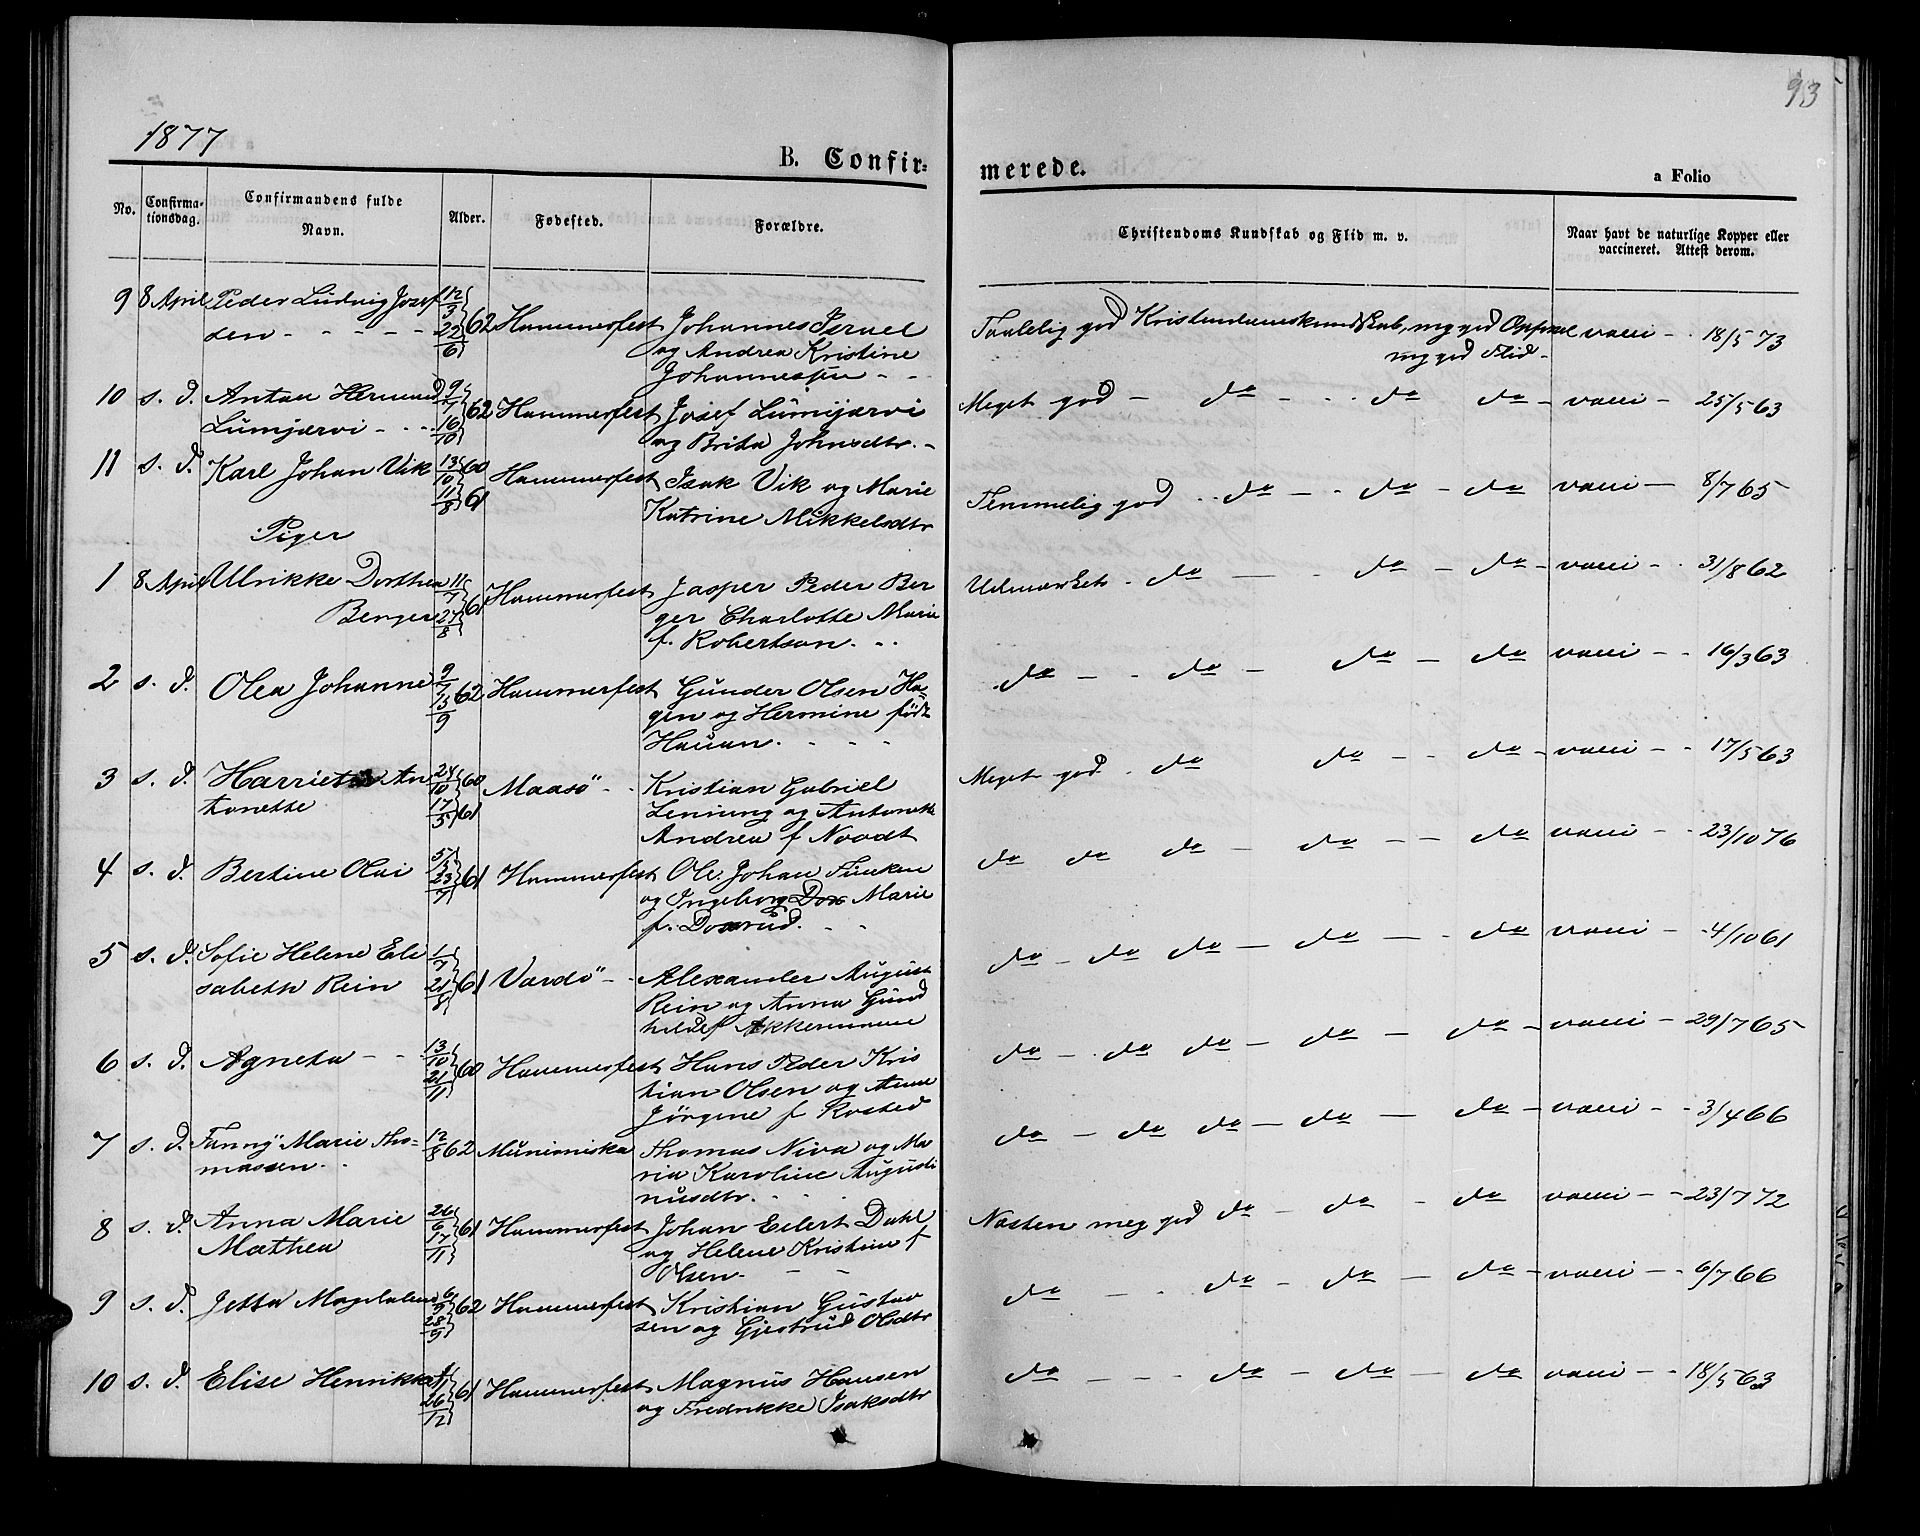 93
1877
B. Confir=
merede.
a Folio
No.
Confirma-
tionsdag.
Confirmandens fulde
Navn.
Alder.
Fødested.
Forældre.
Christendoms Kundskab og Flid m. v.
Naar havt de naturlige Kopper eller
vaccineret. Attest derom.
9 8 April Peder Ludvig Josef 12/3 62 Hammerfest Johannes Israel Taalelig god Kristendomskundskab, meg god Opførsel vacci - 18/5 73
sen - - - - - 22/6 og Andrea Kristine meg god Flid -
Johannessen - -
10 s. d. Anton Hermand 9/7 62 Hammerfest Josef Lumijærvi Meget god - do - - do do - vacci - 25/5 63
Lumjærvi - - - 16/10 og Brita Johnsdtr. -
11 s. d. Karl Johan Vik 13/10 60 Hammerfest Isak Vik og Marie Temmelig god - do - - do - do vacci - 8/7 65
11/8 61 Katrine Mikkelsdtr
Piger
1 8 April Ulrikke Dorthea 11/7 61 Hammerfest Jasper Peder Ber Udmærket - do - - do - do - vacci - 31/8 62
Berger 27/8 ger Charlotte Marie
f. Robertson. - -
2 s. d. Olea Johanne 9/7 62 Hammerfest Gunder Olsen Ha= do - - do - do - do vacci - - 16/3 63
13/9 gen og Hermine født
Hauan. - - -
3 s. d. Harriet An 24/10 60 Maasö - - Kristian Gabriel Meget god - do do - - do - vacci - - 17/5 63
tonette 17/5 61 Lenning og Antonette
Andrea f Noodt
4 s. d. Bertine Olai 61 Hammerfest Ole Johan Finken do do do - do - - do vacci - - 23/10 76
23/7 og Ingeborg Dox Marie
f. Doxrud. - -
5 s. d. Sofie Helene Eli 1/7 61 Vardö - - Alexander August do - do do - do - - do vacci - 4/10 61
sabeth Rein 21/8 Rein og Anna Gund
hilde f Akkermann
6 s. d. Agneta - - 13/10 60 Hammerfest Hans Peder Kris do - do do - do - do - vacci - 29/7 65
21/11 tian Olsen og Anne
Jörgine f Rosted
7 s. d. Fanny Marie Tho- 12/8 62 Munioniska Thomas Niva og Ma do - do do - do - do - vacci - - 3/4 66
massen. - ria Karoline Augusti
nusdtr. - - -
8 s. d. Anna Marie 26/6 61 Hammerfest Johan Eilert Dahl Næsten meg god do - do - do vacci - - 23/7 72
Mathea 17/11 og Helene Kristine f
Olsen. - -
9 s. d. Jetta Magdalena 6/9 62 Hammerfest Kristian Gustav do - - do - do - do - vacci - - 6/7 66
28/9 sen og Gjestrud Olsdtr
10 s. d. Elise Henrikka 61 Hammerfest Magnus Hansen do - - - do - do - do - vacci - - 18/5 63
26/12 og Fredrikke Isaksdtr